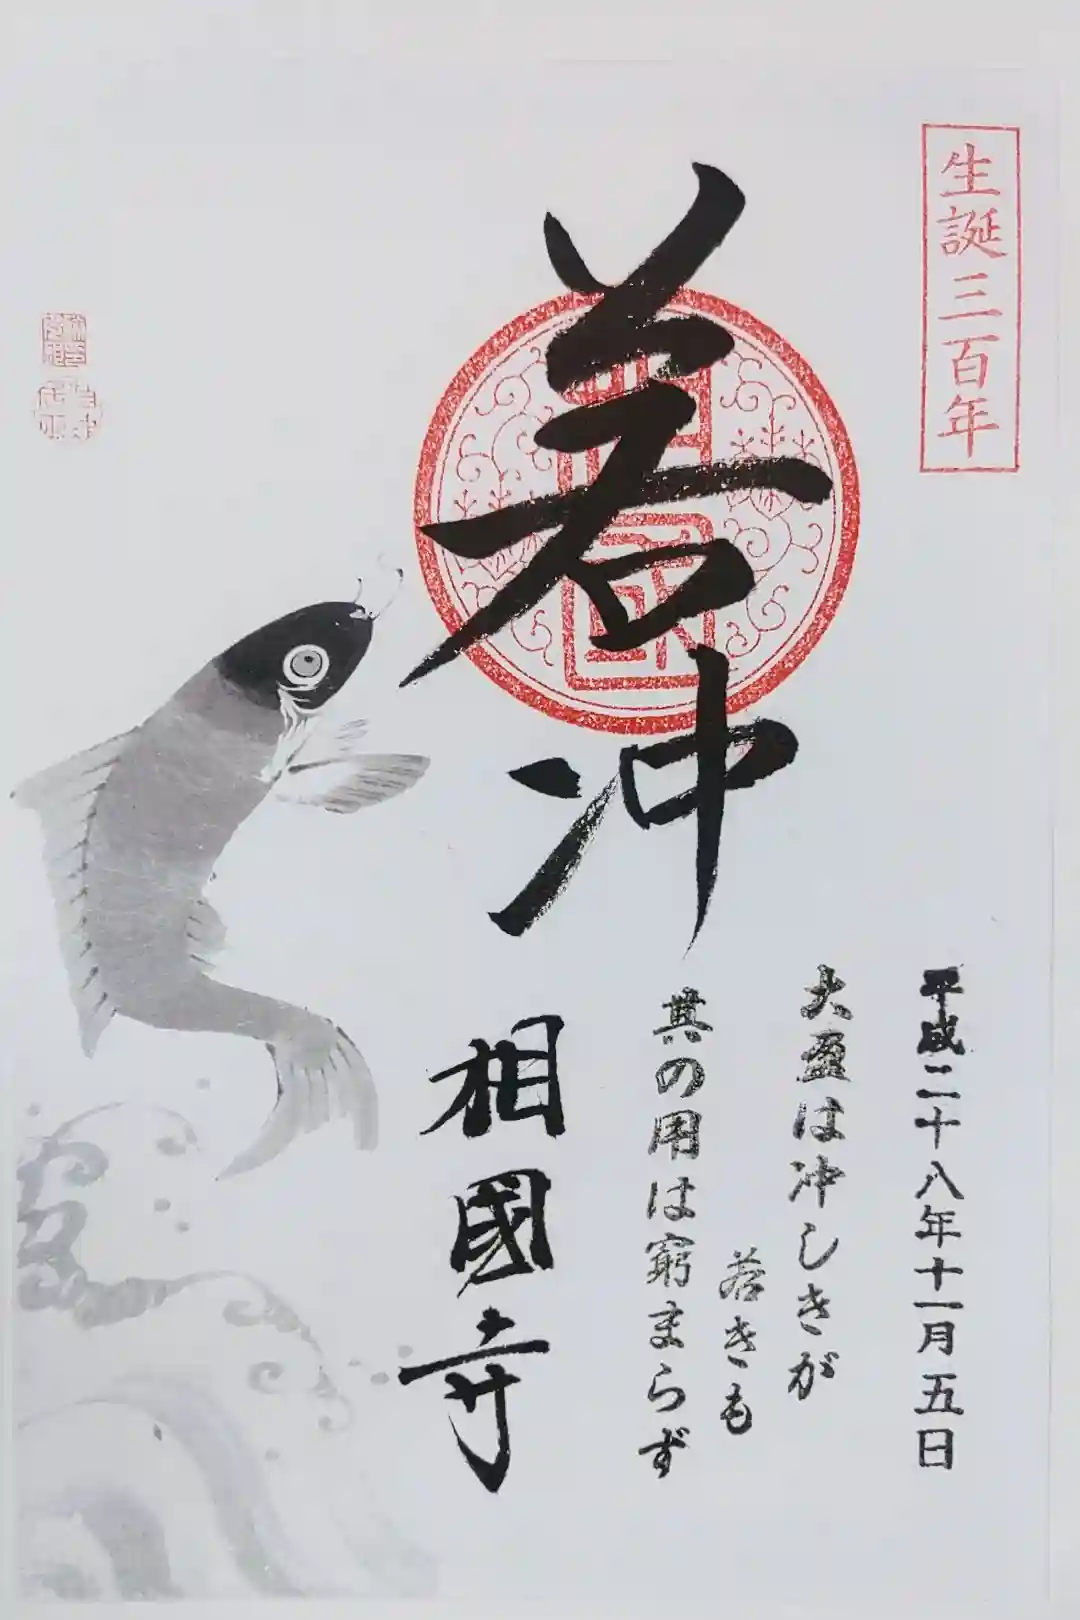 生誕三百年
平成二十八年十一月五日
大盈は冲しきが
若きも
其の用は窮まらず
若冲
相國寺